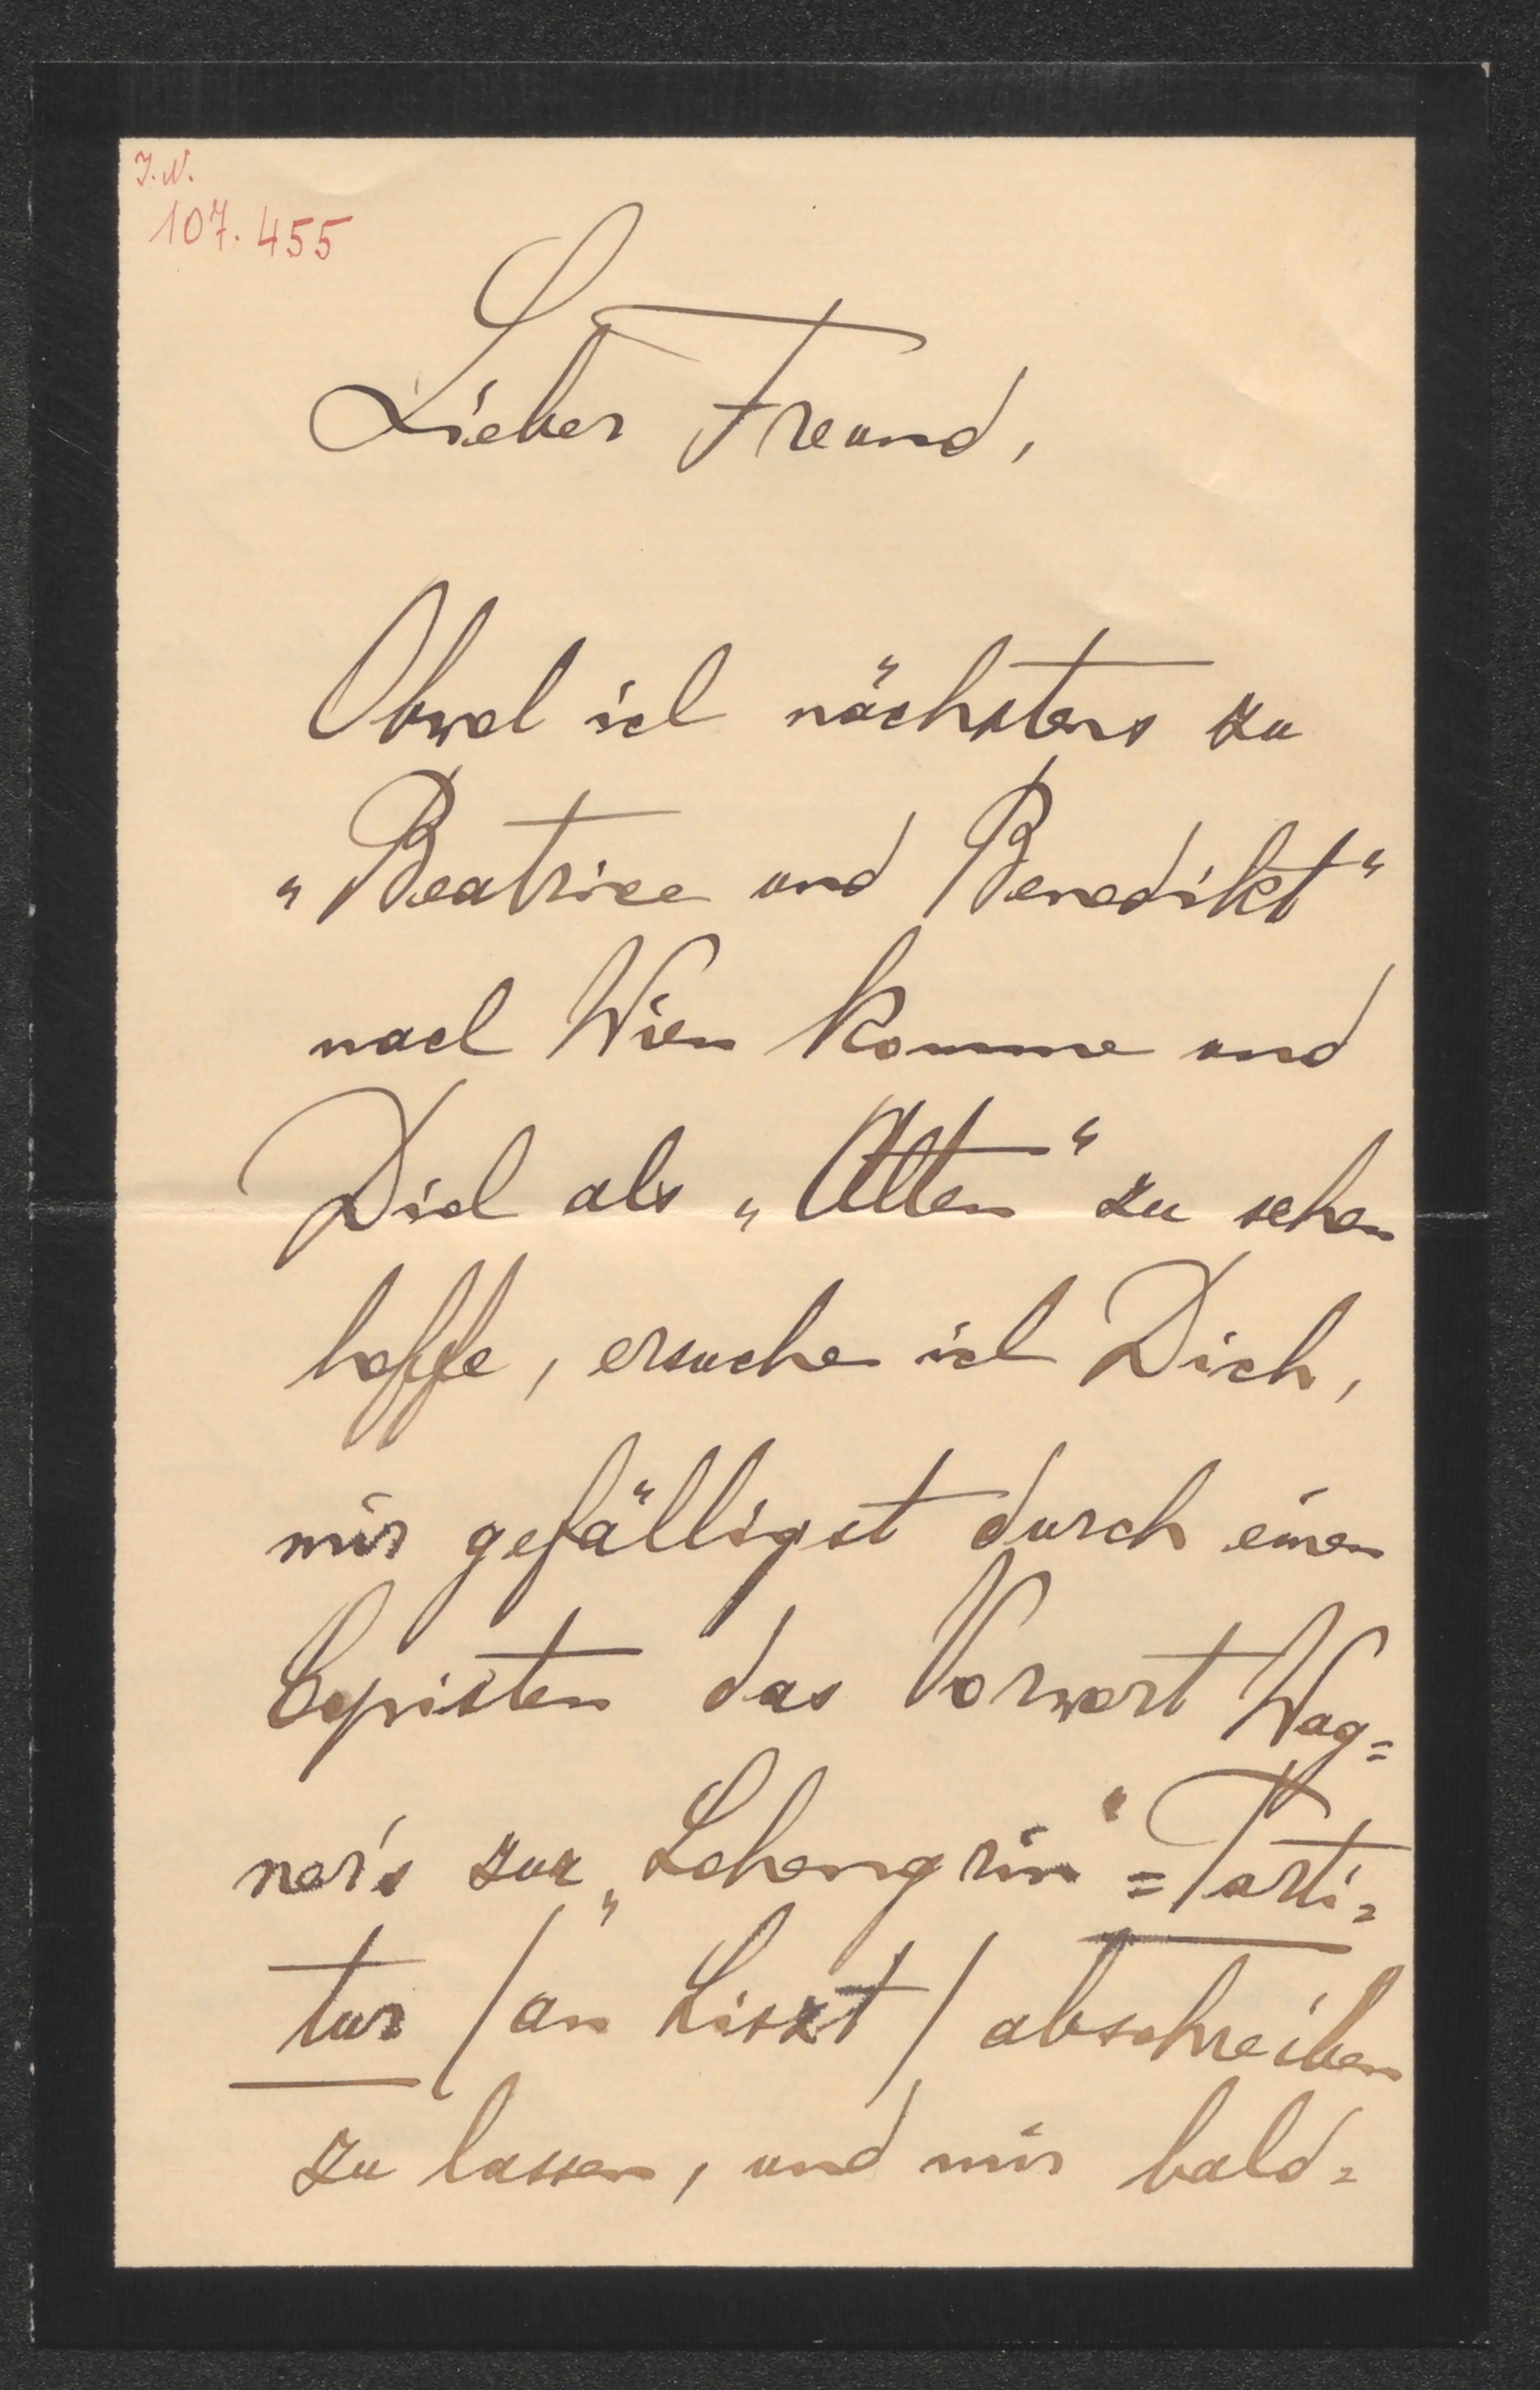 J.N.
107.455
Lieber Freund,
Obwol ich nächstens zu
„Beatrice und Benedikt“
nach Wien komme und
Dich als „Alten“ zu sehen
hoffe, ersuche ich Dich,
mir gefälligst durch einen
Copisten das Vorwort Wag=
ner's zur „Lohengrin“=Parti=
tur /an Liszt/ abschreiben
zu lassen, und mir bald=